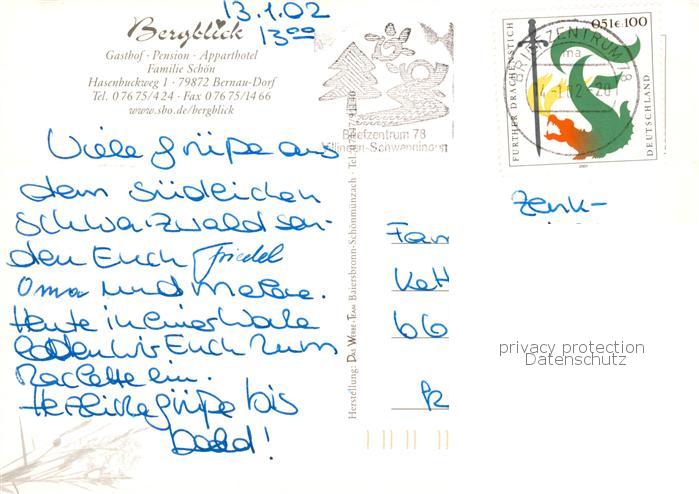 13.1.02
13⁰⁰
Bergblick
Gasthof · Pension · Apparthotel
Familie Schön
Hasenbuckweg 1 · 79872 Bernau-Dorf
Tel. 0 76 75/4 24 · Fax 0 76 75/14 66
www.sbo.de/bergblick
Viele Grüße aus
dem südlichen
Schwarzwald sen-
den Euch Friedel
Oma und
Heute in einer Woche
laden wir Euch zum
Raclette ein.
Herzliche Grüße bis
bald!
Herstellung: Das Werbe-Team Baiersbronn-Schönmünzach
Briefzentrum 78
Villingen-Schwenningen
FURTHER DRACHENSTICH
0,51€ 100
DEUTSCHLAND
2001
BRIEFZENTRUM 78
Fam
Kett
66
privacy protection
Datenschutz